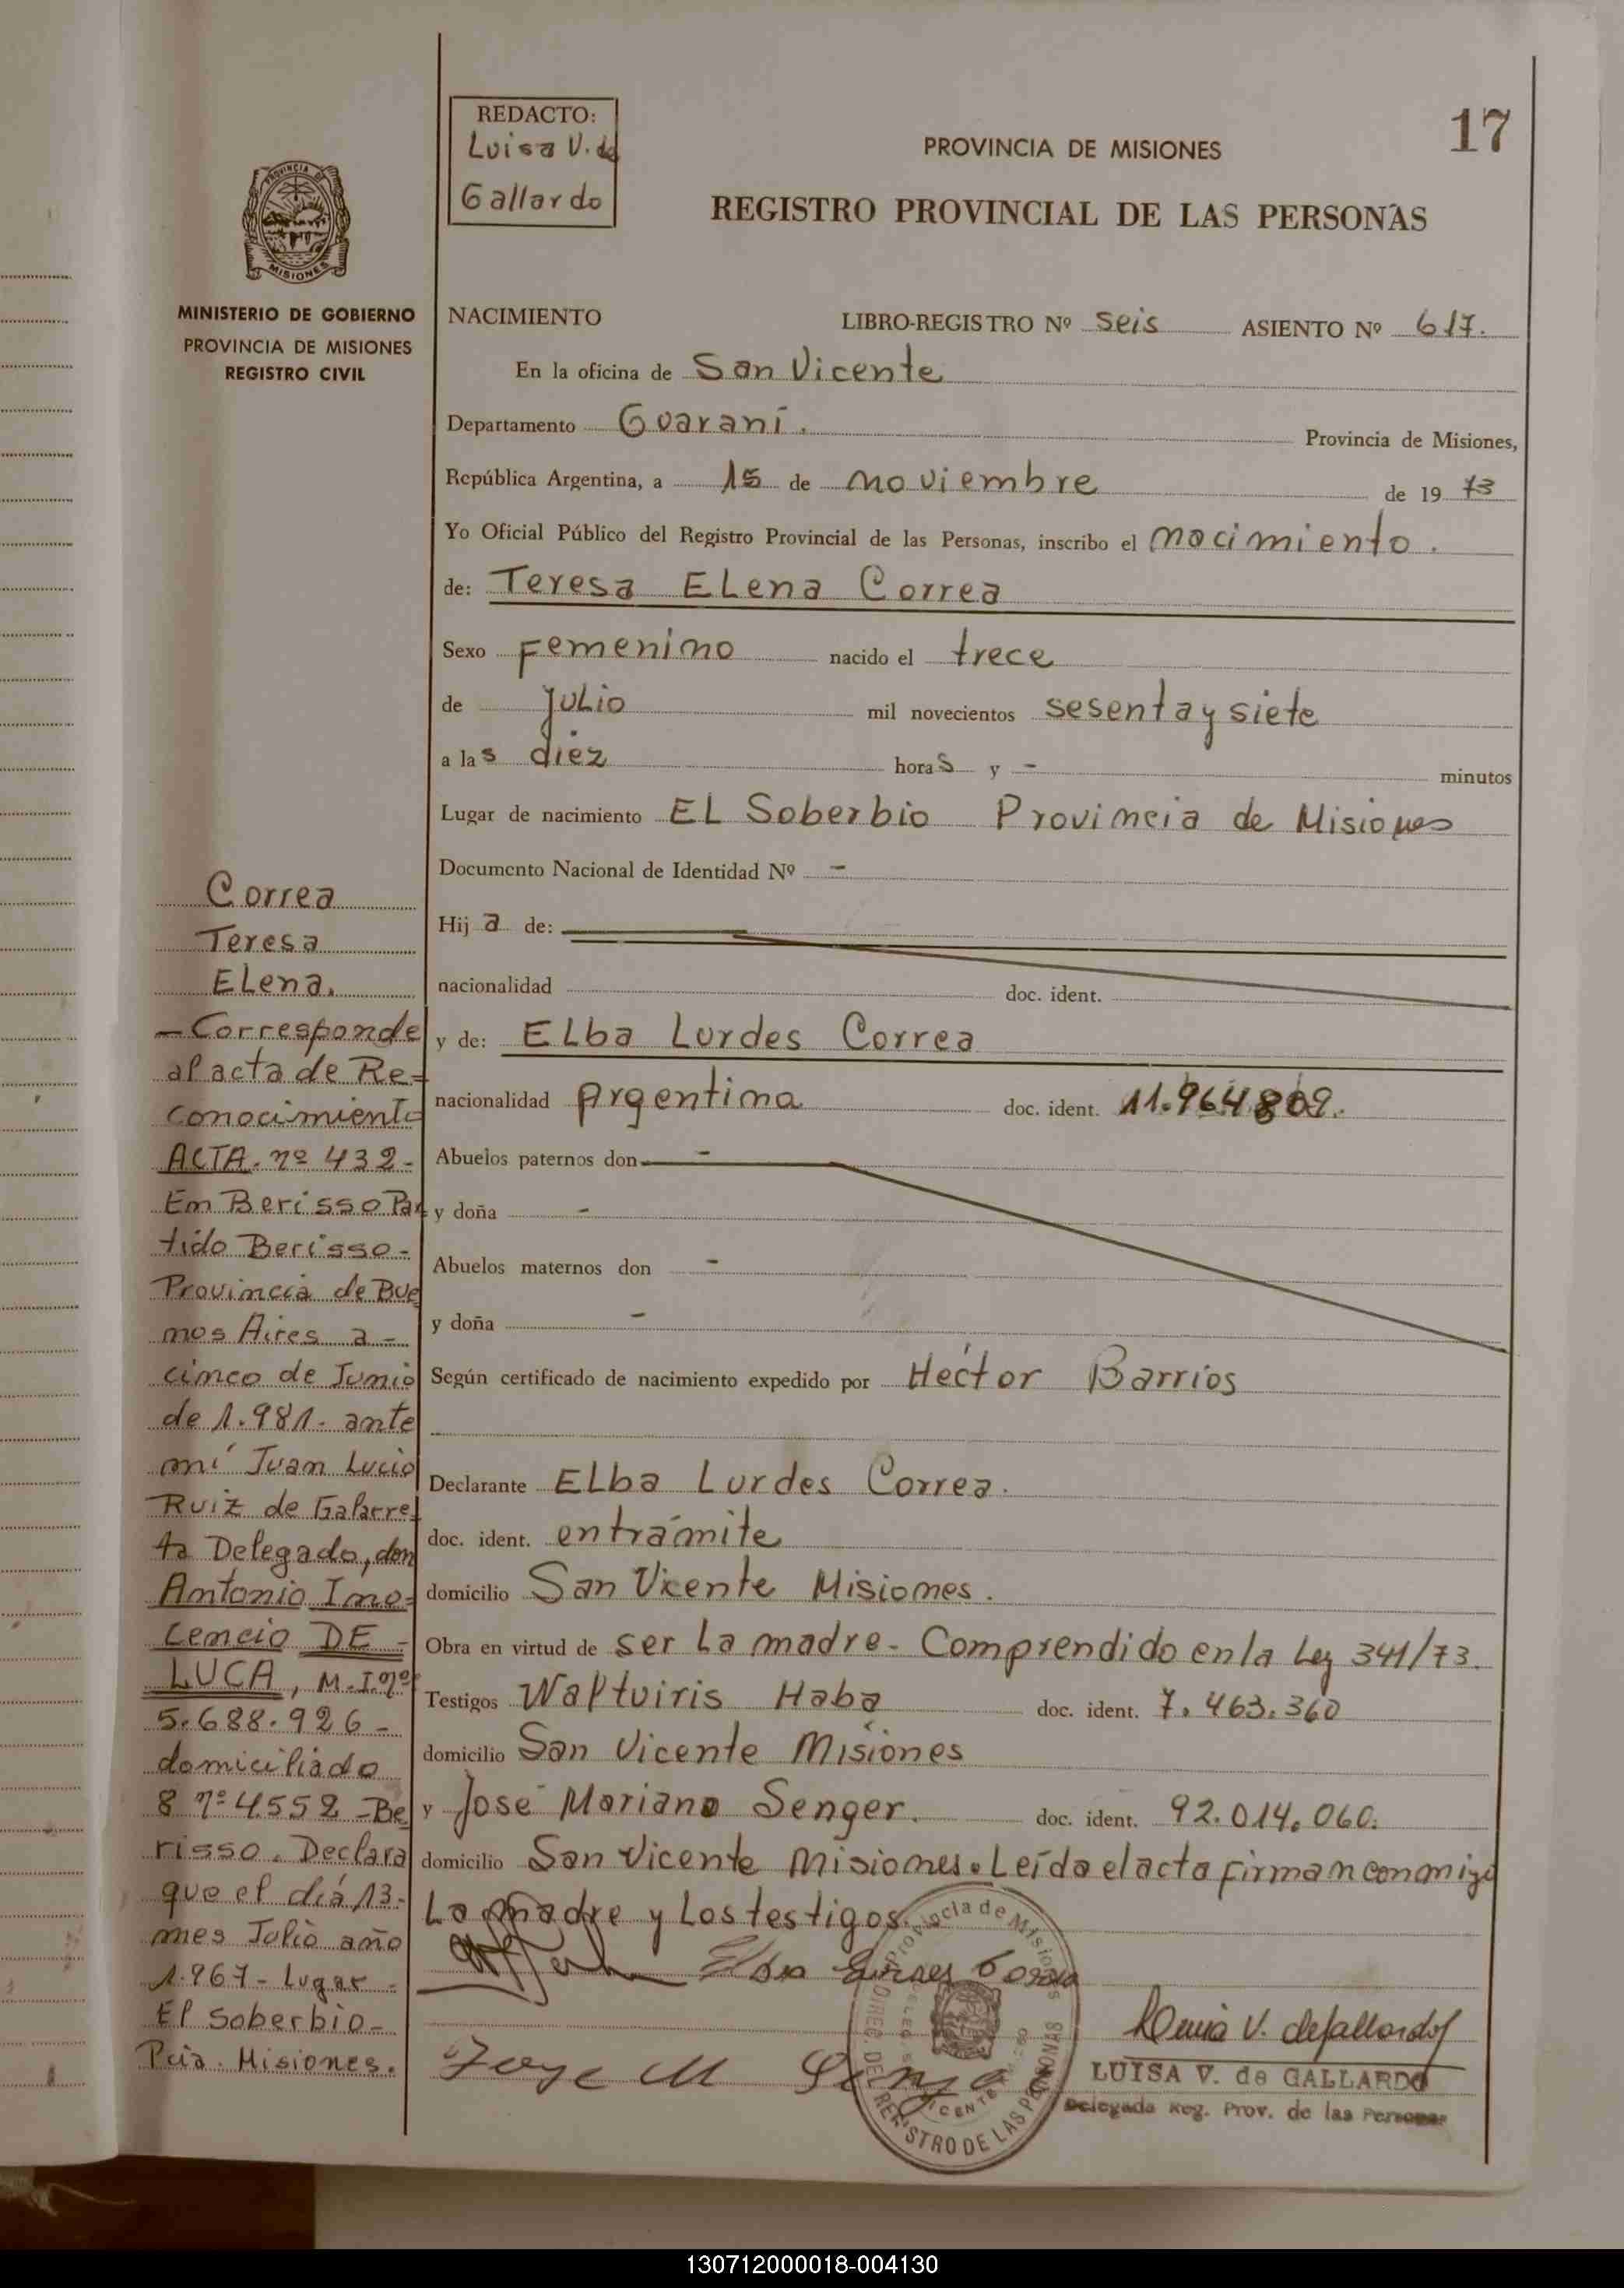 REDACTO:
Luisa V. de
Gallardo
PROVINCIA DE MISIONES
17
REGISTRO PROVINCIAL DE LAS PERSONAS
PROVINCIA DE
MISIONES
MINISTERIO DE GOBIERNO
PROVINCIA DE MISIONES
REGISTRO CIVIL
NACIMIENTO LIBRO-REGISTRO Nº seis ASIENTO Nº 617.
En la oficina de San Vicente
Departamento Guaraní. Provincia de Misiones,
República Argentina, a 15 de noviembre de 19 73
Yo Oficial Público del Registro Provincial de las Personas, inscribo el nacimiento.
de: Teresa ELena Correa
Sexo Femenino nacido el trece
de julio mil novecientos sesenta y siete
a las diez horas y - minutos
Lugar de nacimiento EL Soberbio Provincia de Misiones
Documento Nacional de Identidad Nº -
Hij a de:
nacionalidad doc. ident.
y de: ELba Lurdes Correa
nacionalidad Argentina doc. ident. 11.964.809.
Abuelos paternos don -
y doña -
Abuelos maternos don -
y doña -
Según certificado de nacimiento expedido por Hector Barrios
Declarante ELba Lurdes Correa.
doc. ident. en trámite
domicilio San Vicente Misiones.
Obra en virtud de ser La madre. Comprendido en la Ley 341/73.
Testigos Waltuiris Haba doc. ident. 7.463.360
domicilio San Vicente Misiones
y José Mariano Senger. doc. ident. 92.014.060.
domicilio San Vicente Misiones. Leída el acta firman conmigo
La madre y Los testigos.
Correa
Teresa
ELena.
- Corresponde
al acta de Re=
conocimiento
ACTA. nº 432-
En Berisso Par
tido Berisso-
Provincia de Bue
nos Aires a-
cinco de Junio
de 1.981. ante
mí Juan Lucio
Ruiz de Galarre
ta Delegado, don
Antonio Ino=
cencio DE -
LUCA, M.I.nº
5.688.926-
domiciliado
8 nº 4552-Be
risso. Declara
que el día 13-
mes Julio año
1.967- Lugar-
El Soberbio-
Pcia. Misiones.
Elba Lurdes Correa
Jose M Senger
Luisa V. de Gallardo
LUISA V. de GALLARDO
Delegada Reg. Prov. de las Personas
Provincia de Misiones
DIREC. DEL REGISTRO DE LAS PERSONAS
130712000018-004130